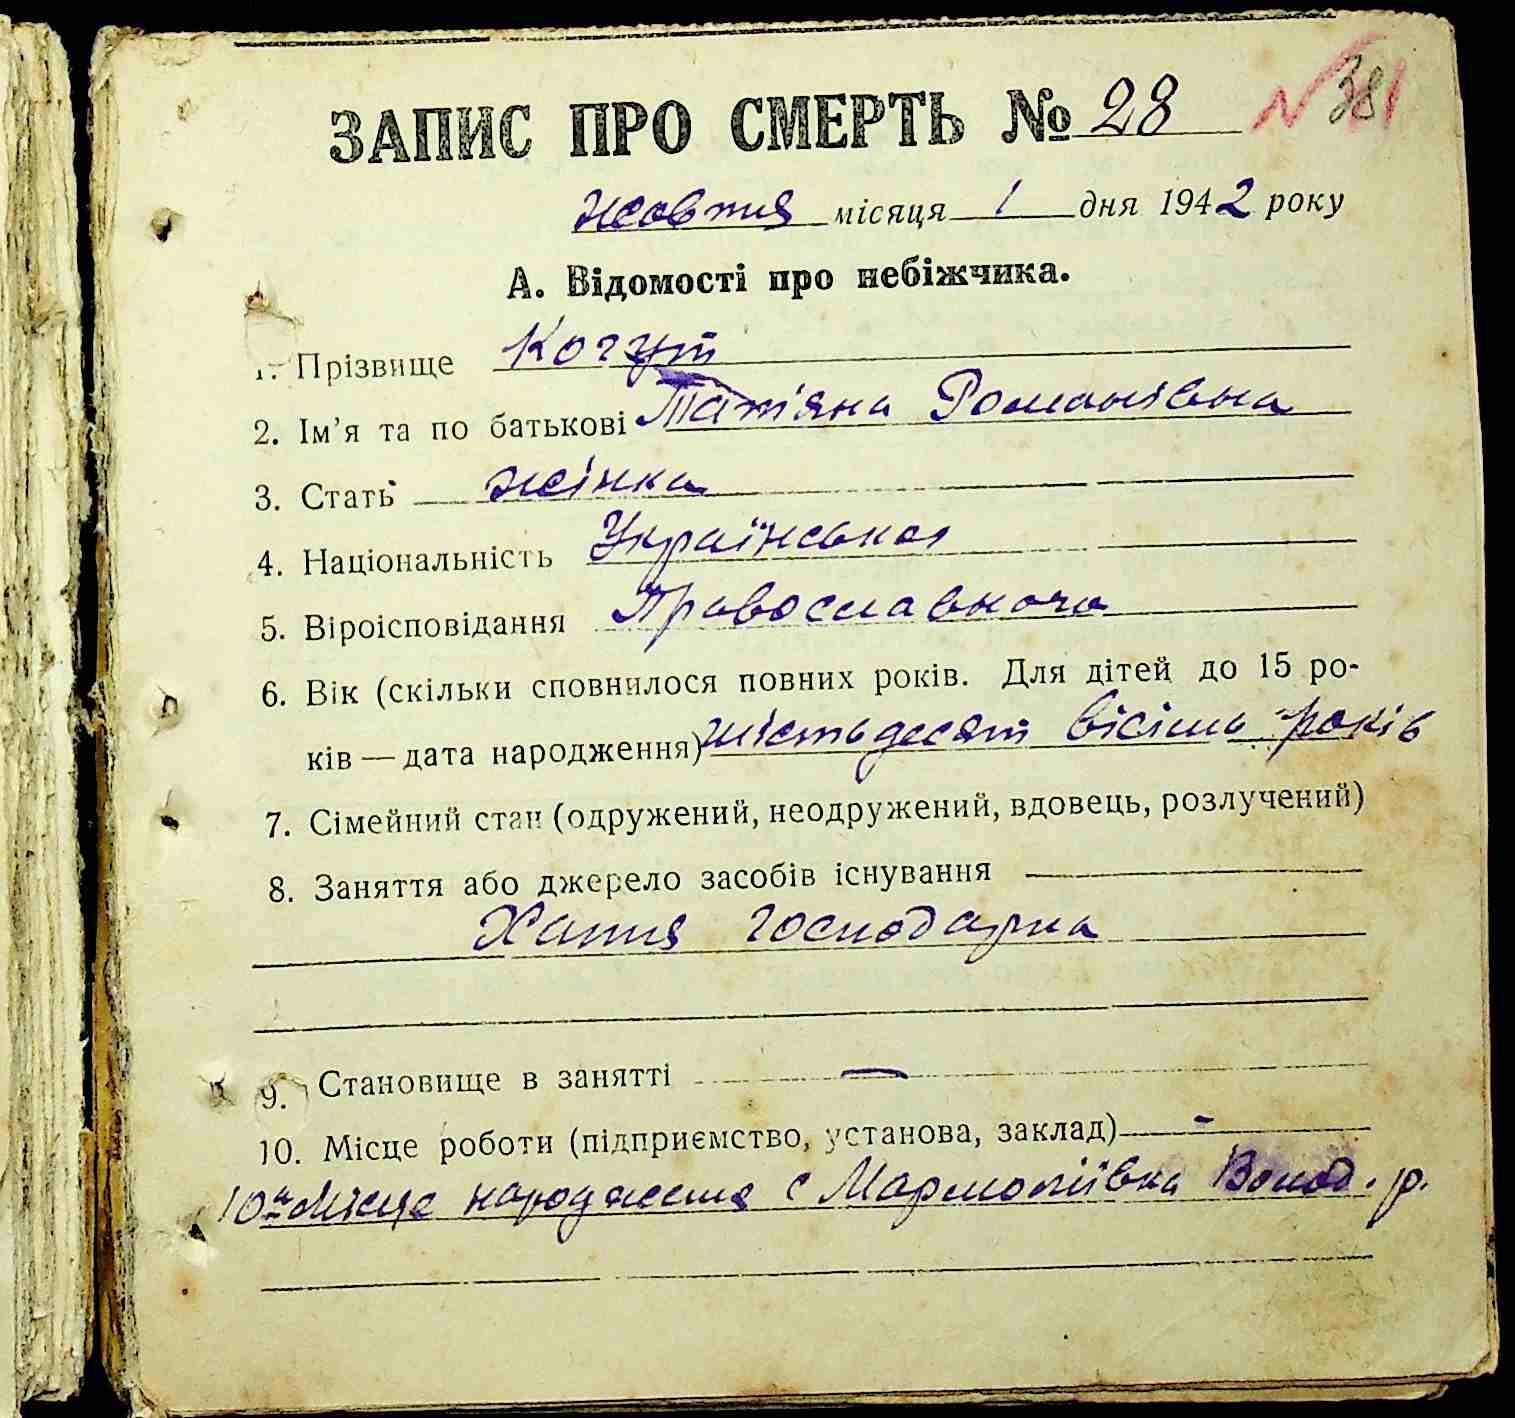 ЗАПИС ПРО СМЕРТЬ № 28
38
жовтня місяця 1 дня 1942 року
А. Відомості про небіжчика.
1. Прізвище Когут
2. Ім’я та по батькові Тат'яна Романівна
3. Стать жінка
4. Національність Українська
5. Віроісповідання Православного
6. Вік (скільки сповнилося повних років. Для дітей до 15 ро-
ків — дата народження) шістьдесят вісімь років
7. Сімейний стан (одружений, неодружений, вдовець, розлучений)
8. Заняття або джерело засобів існування
Хатня господарка
9. Становище в занятті —
10. Місце роботи (підприємство, установа, заклад) -
10а Місце народження с Мармоліївка Волод. р.